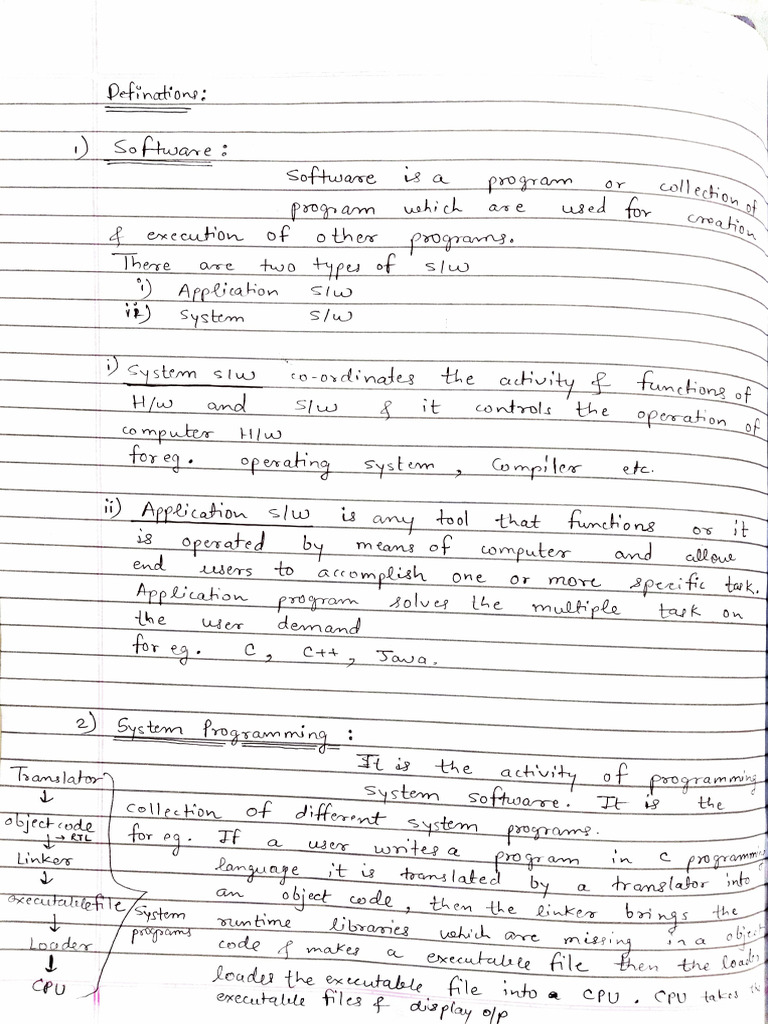 Definations:
1) Software:
Software is a program or collection of
program which are used for creation
& execution of other programs.
There are two types of s/w
i) Application s/w
ii) System s/w
i) System s/w co-ordinates the activity & functions of
H/w and s/w & it controls the operation of
computer H/w
for eg. operating system, Compiler etc.
ii) Application s/w is any tool that functions or it
is operated by means of computer and allow
end users to accomplish one or more specific task.
Application program solves the multiple task on
the user demand
for eg. C, C++, Java.
2) System Programming:
It is the activity of programming
system software. It is the
collection of different system programs.
for eg. If a user writes a program in C programming
language it is translated by a translator into
an object code, then the linker brings the
runtime libraries which are missing in a object
code & makes a executable file then the loader
loades the executable file into a CPU. CPU takes the
executable files & display o/p
Translator
↓
object code
↓→ RTL
Linker
↓
executable file
↓
Loader
↓
CPU
System
programs